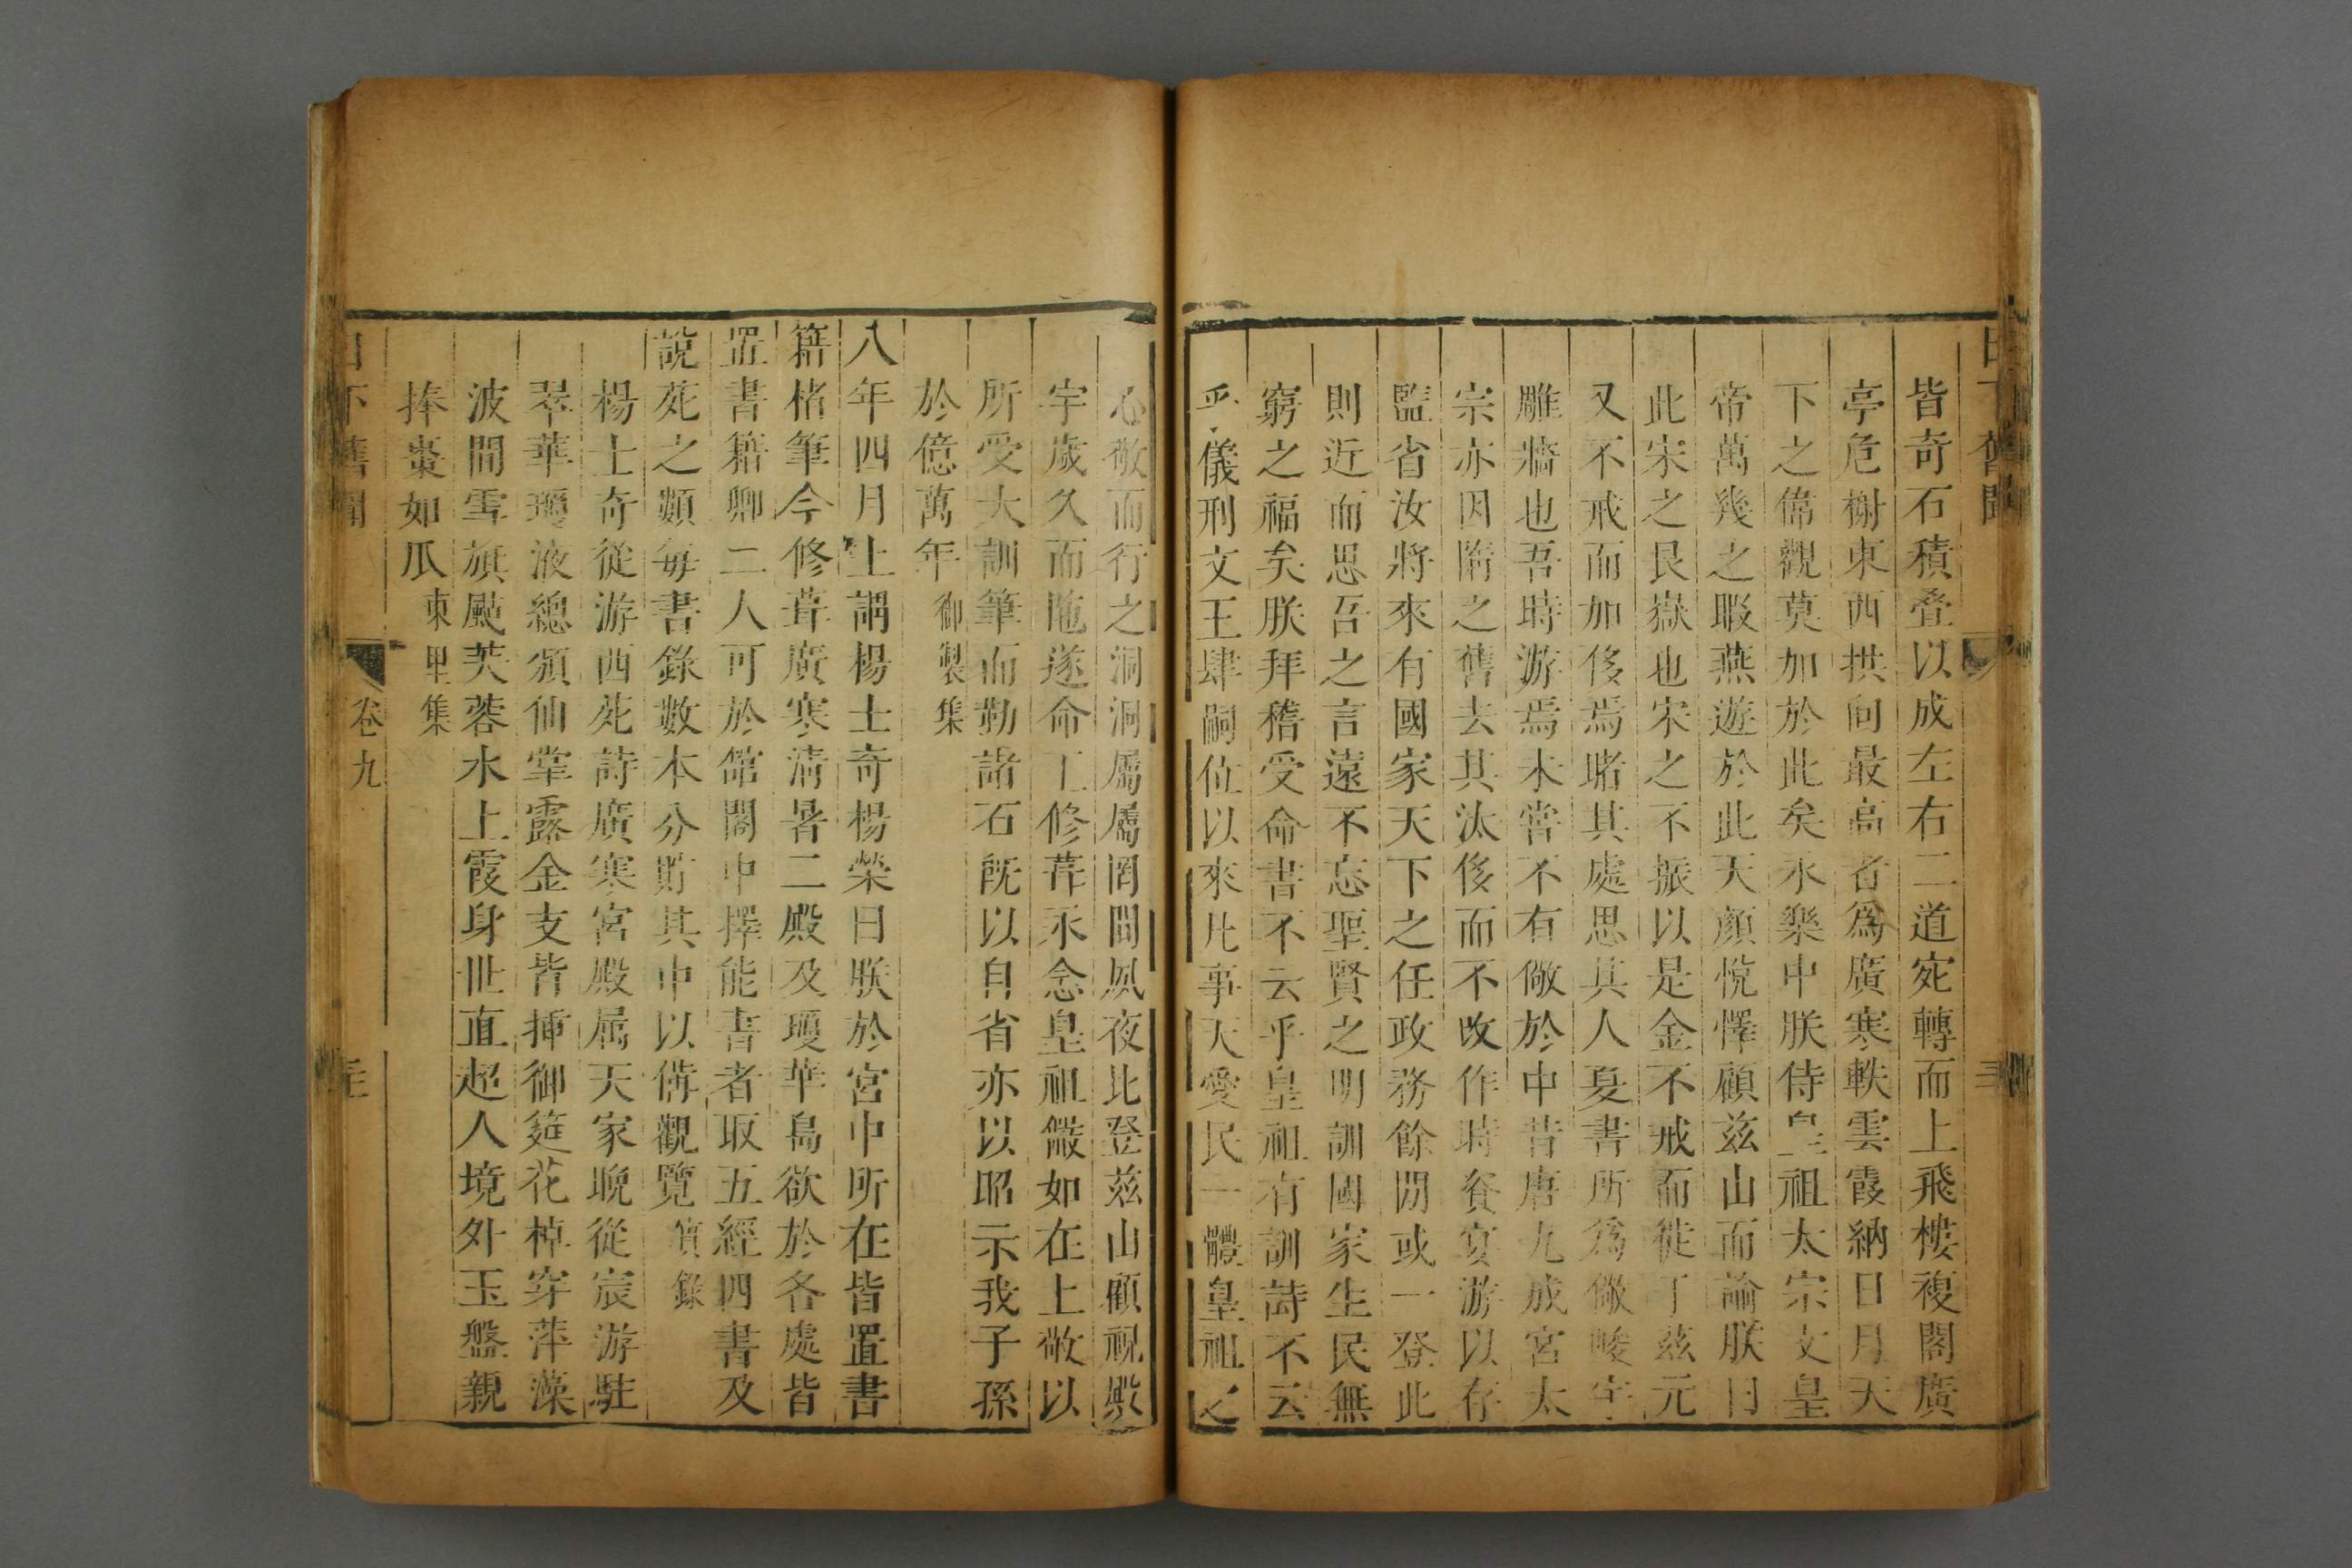 日下舊聞
皆奇石積疊以成左右二道宛轉而上飛樓複閣廣
亭危榭東西拱向最高者爲廣寒軼雲霞納日月天
下之偉觀莫加於此矣永樂中朕侍皇祖太宗文皇
帝萬幾之暇燕遊於此天顏悅懌顧兹山而諭朕曰
此宋之艮嶽也宋之不振以是金不戒而徙于兹元
又不戒而加侈焉睹其處思其人夏書所爲儆峻宇
雕牆也吾時游焉未嘗不有儆於中昔唐九成宮太
宗亦因隋之舊去其汰侈而不改作時資宴游以存
監省汝將來有國家天下之任政務餘閒或一登此
則近而思吾之言遠不忘聖賢之明訓國家生民無
窮之福矣朕拜稽受命書不云乎皇祖有訓詩不云
乎儀刑文王肆嗣位以來凡事天愛民一體皇祖之
心敬而行之洞洞屬屬罔間夙夜比登兹山顧視殿
宇歲久而陁遂命工修葺永念皇祖儼如在上敬以
所受大訓筆而勒諸石既以自省亦以昭示我子孫
於億萬年 御製集
八年四月上謂楊士奇楊榮曰朕於宮中所在皆置書
籍楮筆今修葺廣寒清暑二殿及瓊華島欲於各處皆
置書籍卿二人可於館閣中擇能書者取五經四書及
說苑之類每書錄數本分貯其中以備觀覽 實錄
楊士奇從游西苑詩廣寒宮殿屬天家晩從宸游駐
翠華瓊液總頒仙掌露金支皆揷御筵花棹穿萍藻
波間雪旗颭芙蓉水上霞身世直超人境外玉盤親
捧棗如瓜 東里集
日下舊聞 卷九